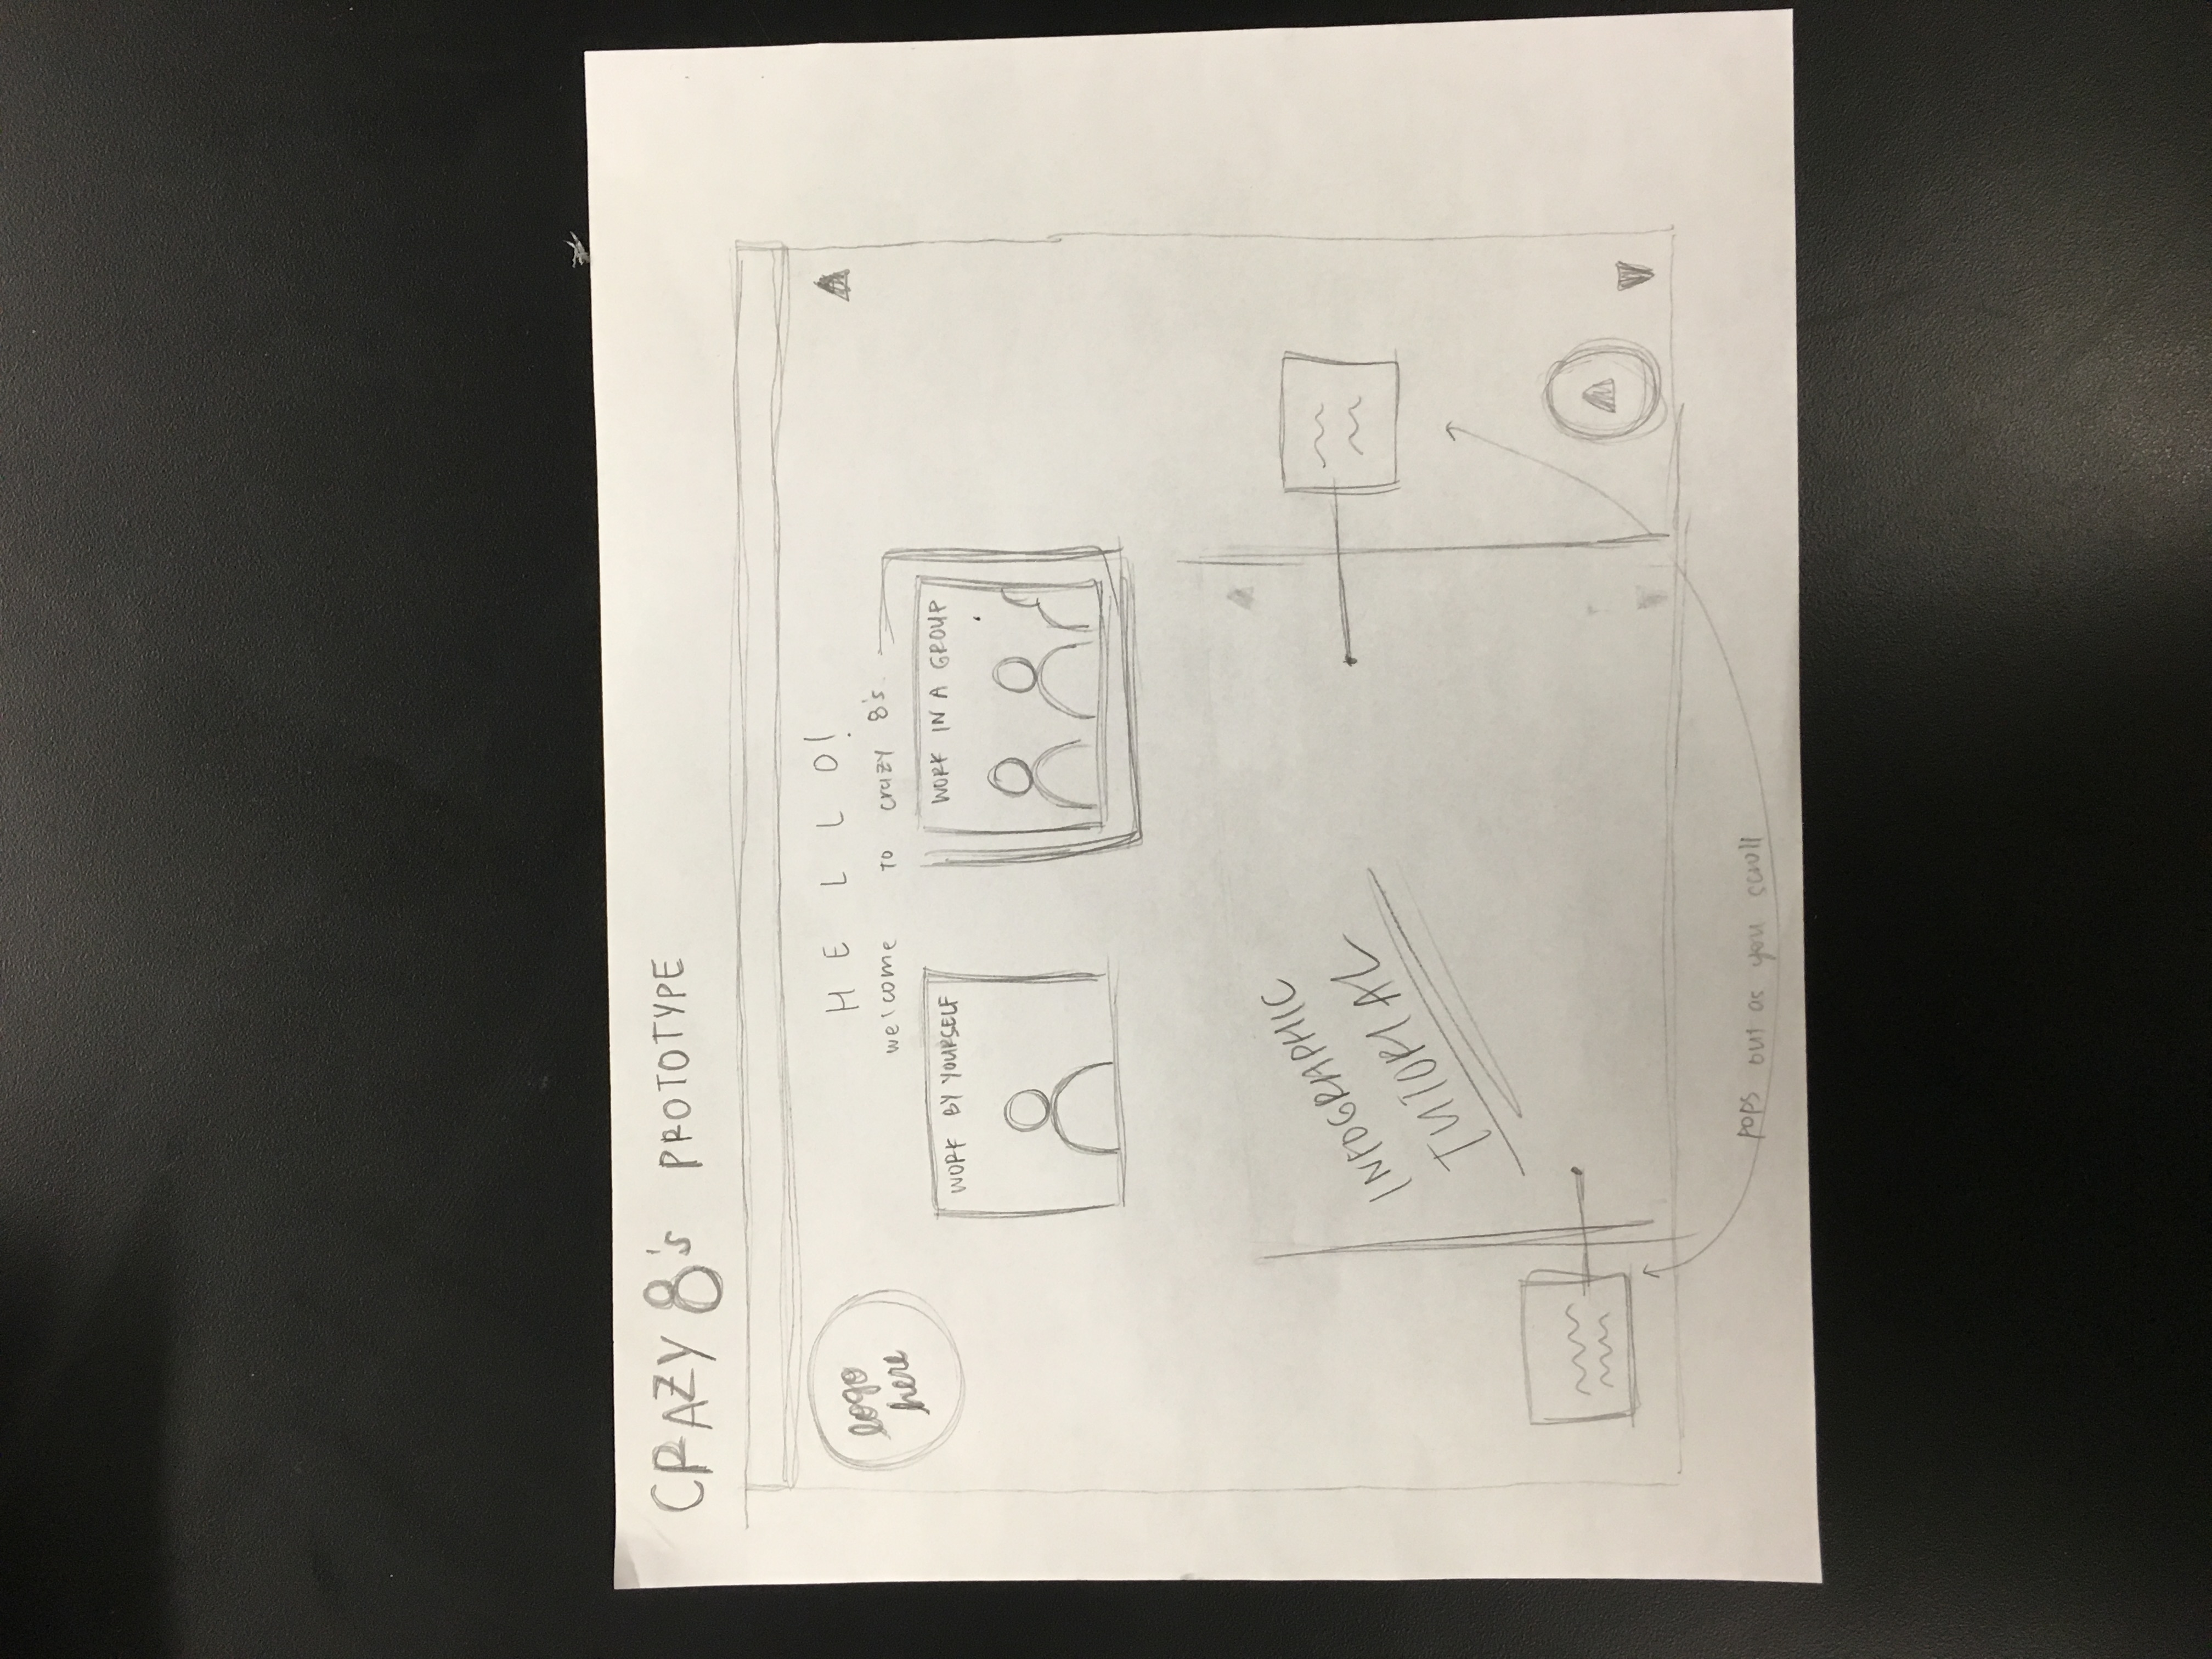 CRAZY 8's PROTOTYPE
logo
here
HELLO!
welcome to crazy 8's
WORK BY YOURSELF
WORK IN A GROUP
INFOGRAPHIC
TUTORIAL
pops out as you scroll